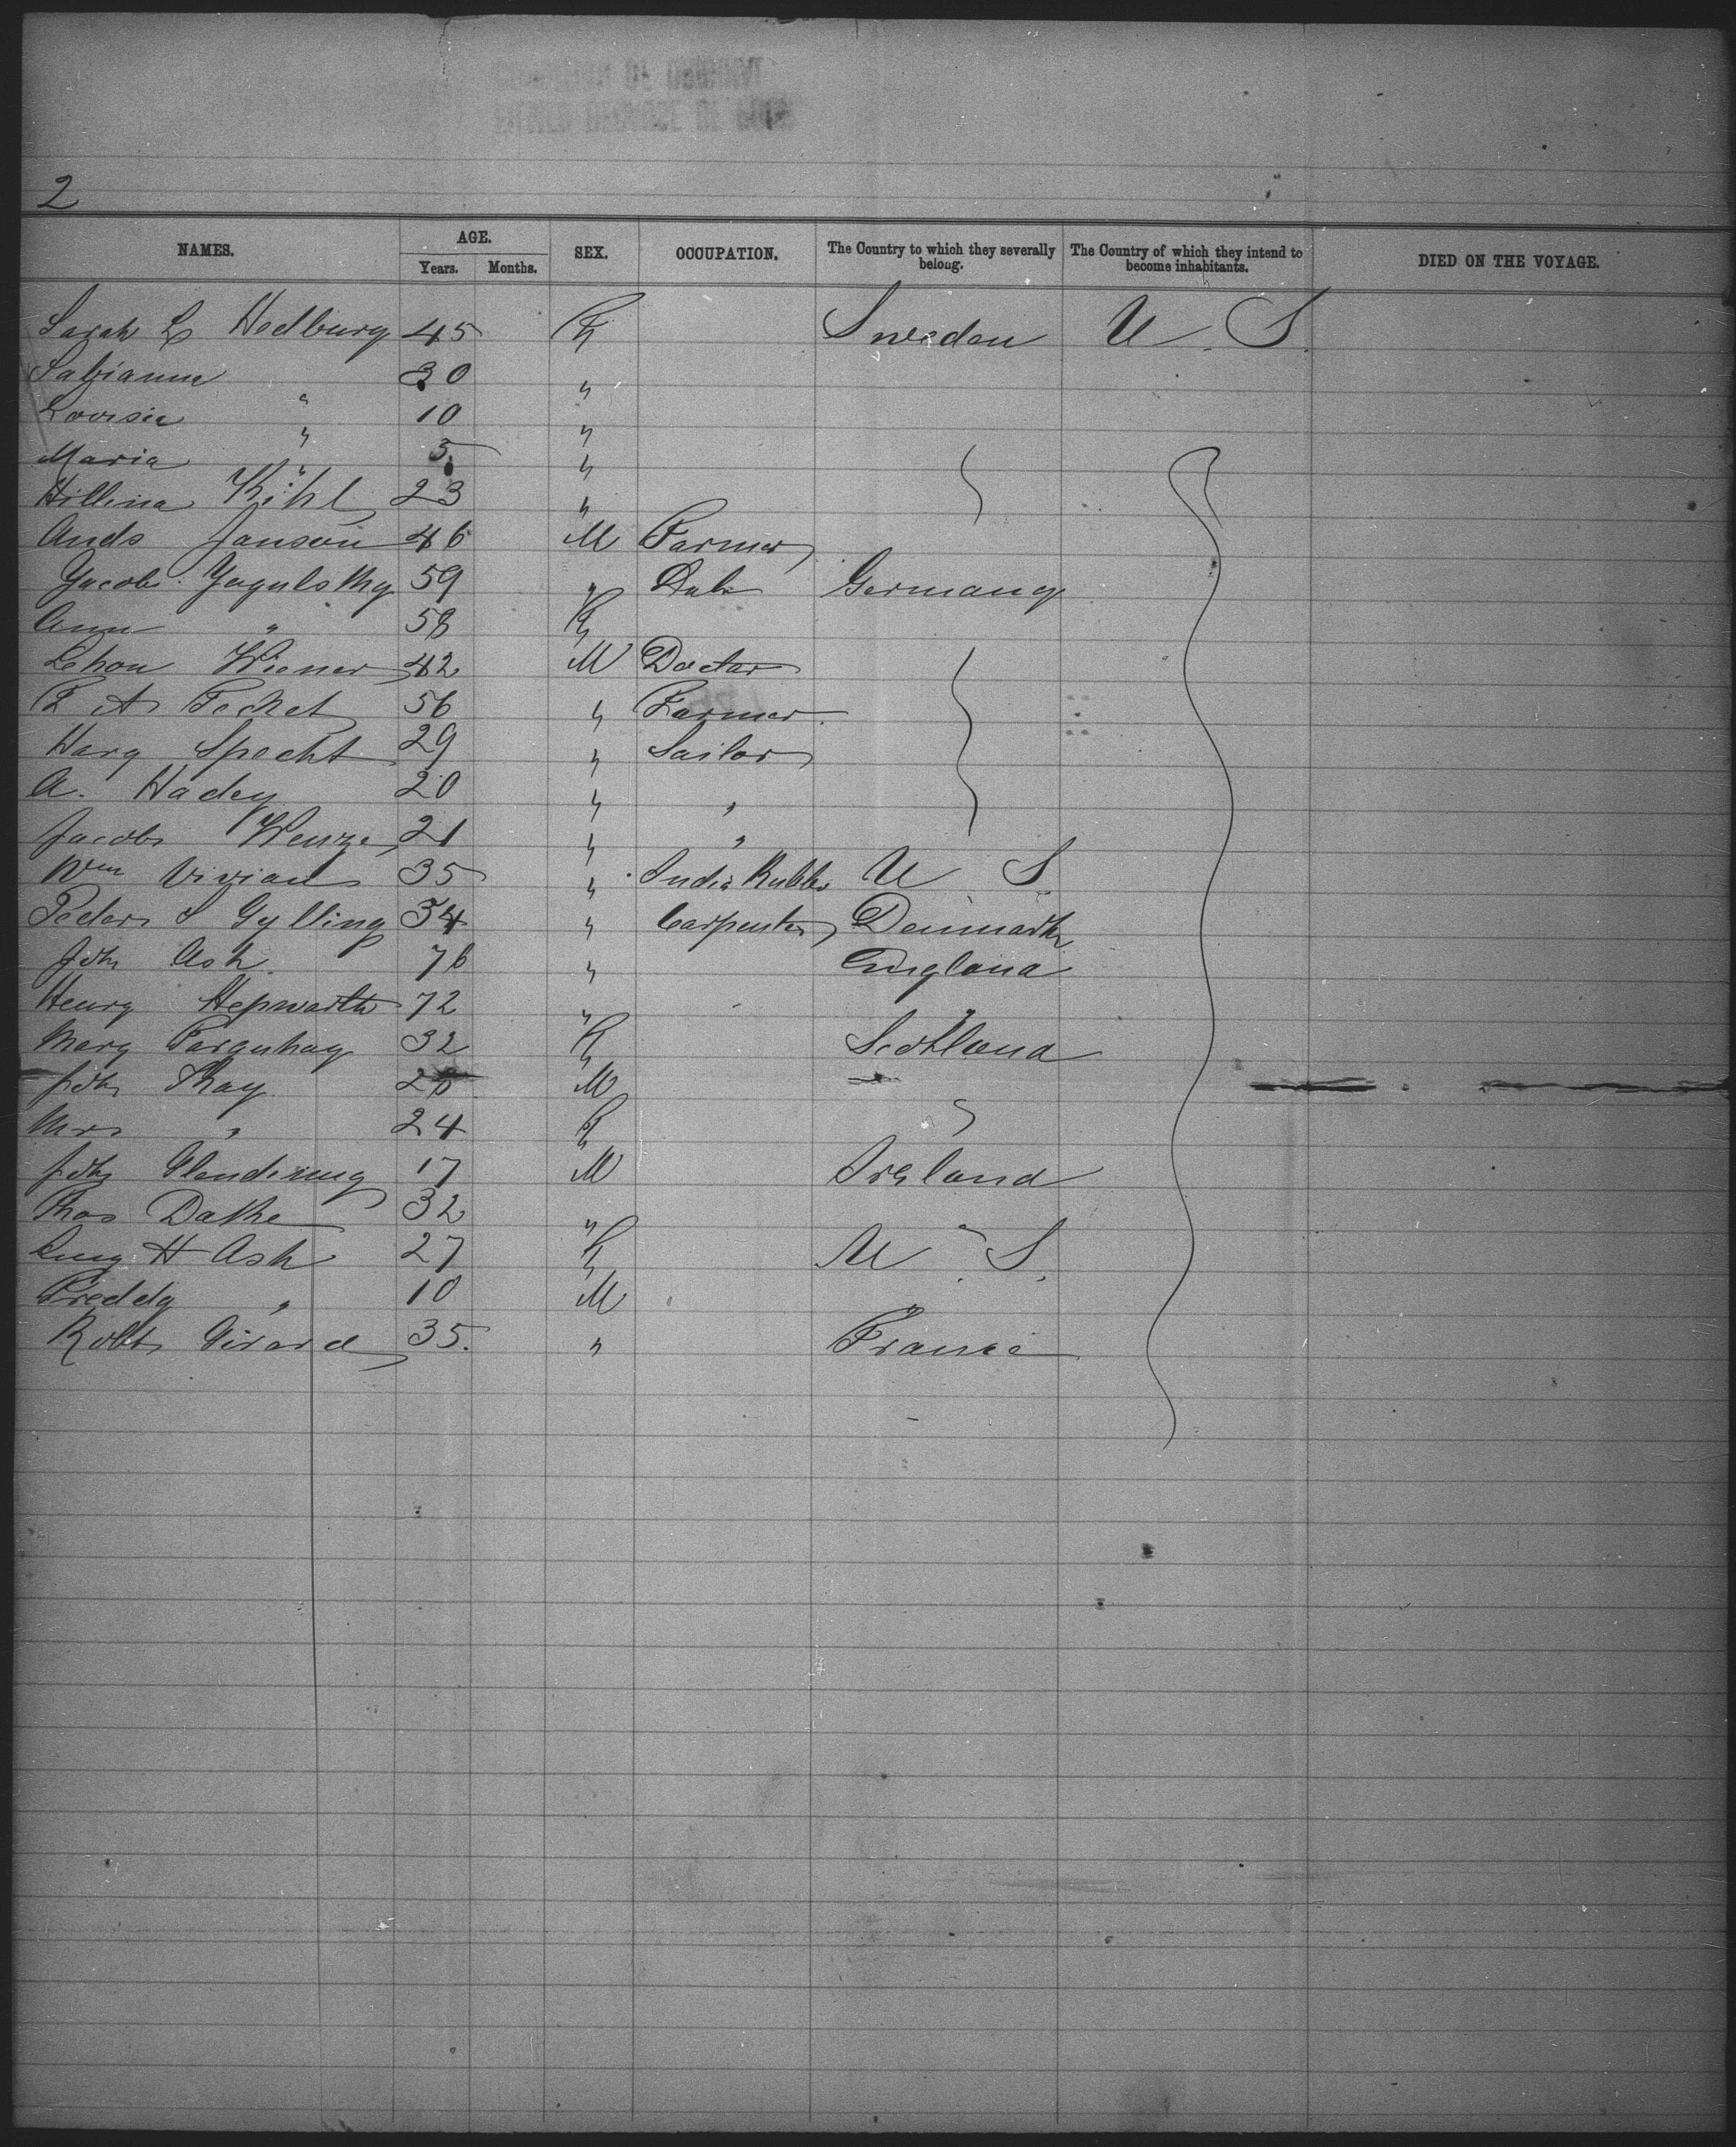 2
NAMES. AGE. SEX. OCCUPATION. The Country to which they severally belong. The Country of which they intend to become inhabitants. DIED ON THE VOYAGE.
Years. Months.
Sarah L Hedburg 45 F Sweden U. S.
30 "
Lovisie " 10 "
Maria " 5 "
Hillina Kihl 23 "
Ands Janson 46 M Farmer
Jacob 59 " Germany
Ann " 58 F
Lehon Wiener 42 M Doctor
F A Techet 56 " Farmer
Harry Specht 29 " Sailor
A. Hadey 20 " "
Jacob Wenze 21 " "
Wm Vivian 35 " India Rubber U S.
Peder S Gylling 54 " Carpenter Denmark
Jno Ash 76 " England
Henry Hepworth 72 " "
Mary Farquhay 32 F Scotland
Jno Shay M
Mrs " 24 F
Jno Glendining 17 M Ireland
Thos 32 " "
H Ash 27 F U. S.
Freddy " 10 M "
Robt Girard 35. " France